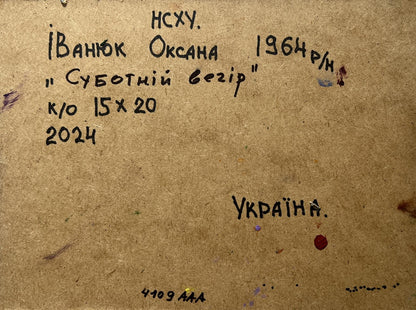 НСХУ.
Іванюк Оксана 1964 р/н
„Суботній вечір"
к/о 15x20
2024
Україна.
4109 ААА